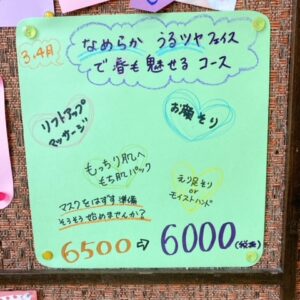 3、4月
なめらか うるツヤフェイス
で春も魅せる コース
リフトアップ
マッサージ
お顔そり
もっちり肌へ
もち肌パック
えり足そり
or
モイストハンド
マスクをはずす 準備
そろそろ始めませんか?
6500⇨6000(税込)